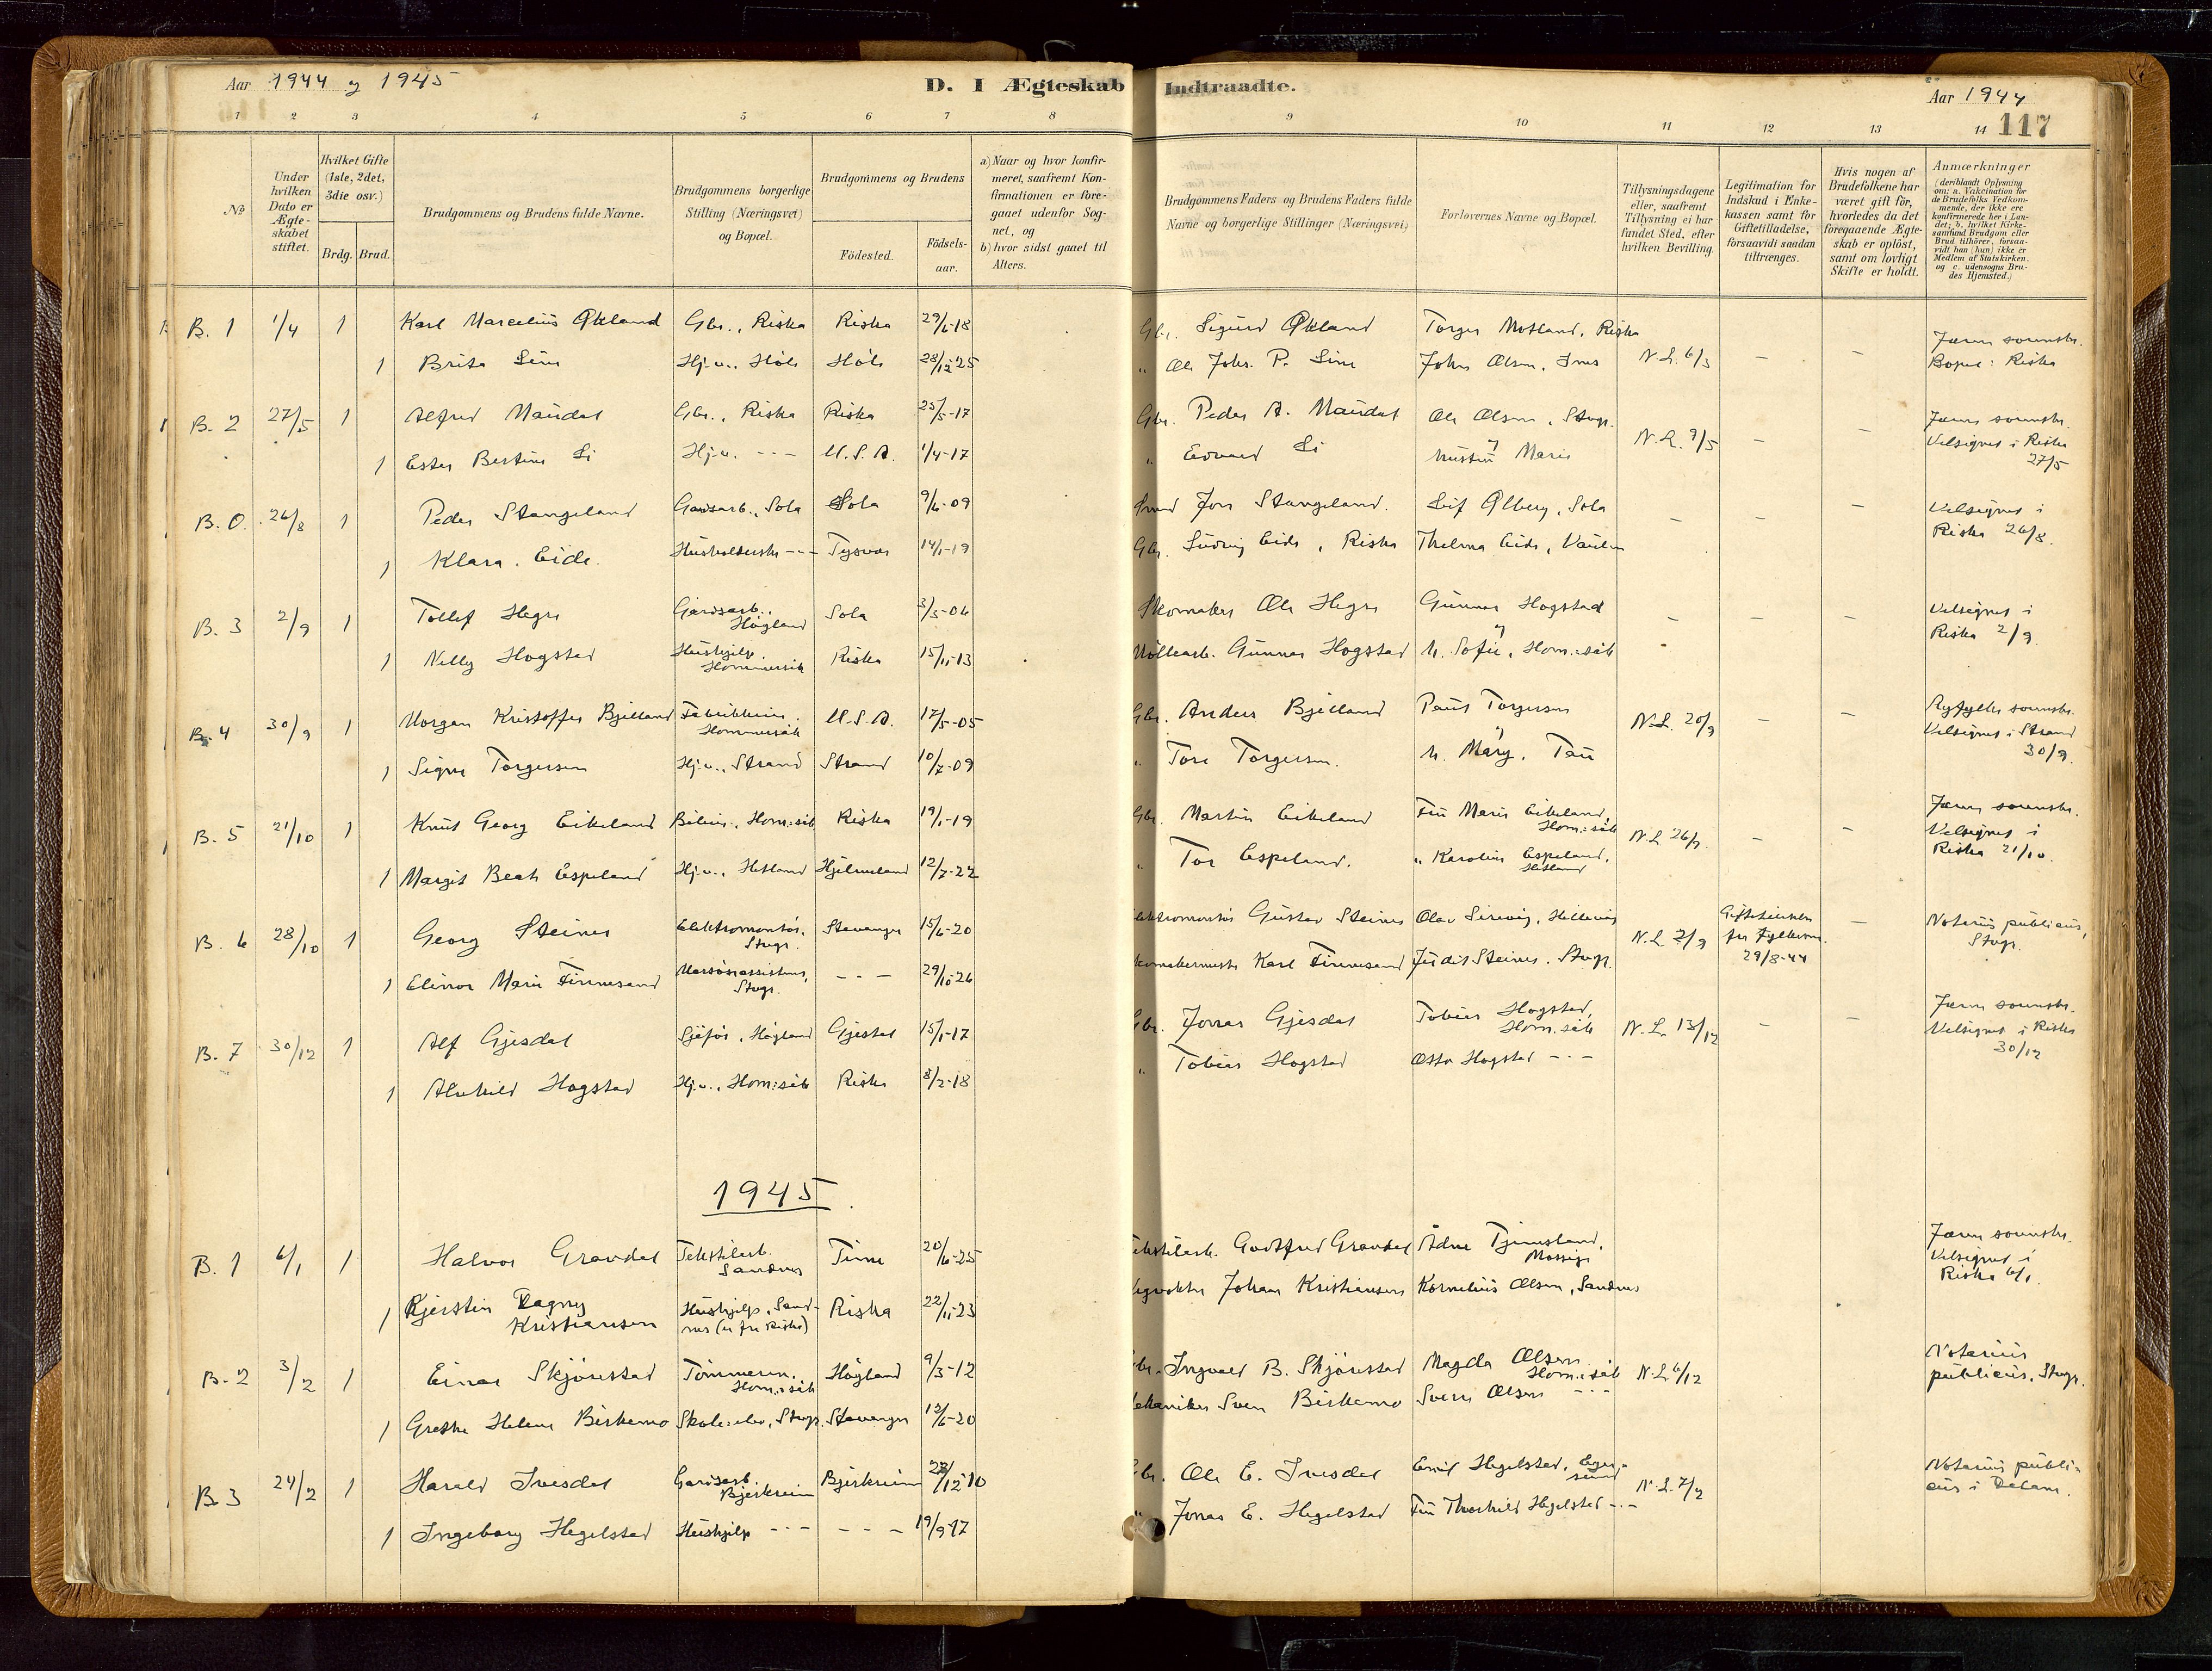 Aar 1944 og 1945
D. I Ægteskab Indtraadte.
Aar 1944
117
1 2 3 4 5 6 7 8 9 10 11 12 13 14
№
Under hvilken Dato er Ægteskabet stiftet.
Hvilket Gifte (1ste, 2det, 3die osv.)
Brdg. Brud.
Brudgommens og Brudens fulde Navne.
Brudgommens borgerlige Stilling (Næringsvei) og Bopæl.
Brudgommens og Brudens
Födested.
Födsels-aar.
a) Naar og hvor konfirmeret, saafremt Konfirmationen er foregaaet udenfor Sognet, og
b) hvor sidst gaaet til Alters.
Brudgommens Faders og Brudens Faders fulde Navne og borgerlige Stillinger (Næringsvei)
Forlovernes Navne og Bopæl.
Tillysningsdagene eller, saafremt Tillysning ei har fundet Sted, efter hvilken Bevilling.
Legitimation for Indskud i Enkekassen samt for Giftetilladelse, forsaavidt saadan tiltrænges.
Hvis nogen af Brudefolkene har været gift för, hvorledes da det foregaaende Ægteskab er oplöst, samt om lovligt Skifte er holdt.
Anmærkninger
(deriblandt Oplysning om: a. Vakcination for de Brudefolks Vedkommende, der ikke ere konfirmerede her i Landet; b. hvilket Kirkesamfund Brudgom eller Brud tilhörer, forsaavidt han (hun) ikke er Medlem af Statskirken. og c. udensogns Brudes Hjemsted.)
B. 1 1/4 1 Karl Marcelius Økland Gbr., Riska Riska 29/6-18 Gbr. Sigurd Økland Torger Motland, Riska
1 Brita Lim Hj.v., Høle Høle 28/12-25 " Ole Johs. P. Lim John Olsen, Ims N.L. 6/3 – – Jæren sorenskr. Bopel: Riska
B. 2 27/5 1 Alfred Maudal Gbr., Riska Riska 25/5-17 Gbr. Peder A. Maudal Ole Olsen, Stvgr.
1 Ester Bertine Li Hj.v. -"- U.S.A. 1/4-17 " Edvard Li og hustru Marie N.L. 9/5 – – Jæren sorenskr. Velsignet i Riska 27/5
B. 0. 26/8 1 Peder Stangeland Gardsarb., Sola Sola 9/6-09 Jon Stangeland. Leif Ølberg, Sola
1 Klara Eide. Husholderske -"- Tysvær 14/1-19 Gbr. Ludvig Eide, Riska Thelma Eide, Vaulen – – – Velsignet i Riska 26/8.
B. 3 2/9 1 Tollef Hegre Gardsarb., Høgland Sola 3/3-06 Skomaker Ole Hegre Gunnar Hogstad
1 Nelly Hogstad Hushjelp, Hommersåk Riska 15/11-13 Mølleab. Gunnar Hogstad og h. Sofie, Hom:såk – – – Velsignet i Riska 2/9.
B. 4 30/9 1 Morgan Kristoffer Bjelland Fabrikkeier, Hommersåk U.S.A. 17/5-05 Gbr. Anders Bjelland Paul Torgersen
1 Signe Torgersen Hj.v., Strand Strand 10/7-09 " Tore Torgersen. og h. Mary, Tau N.L. 20/9 – – Ryfylke sorenskr. Velsignet i Strand 30/9.
B. 5 21/10 1 Knut Georg Eikeland Bileier, Hom:såk Riska 19/1-19 Gbr. Martin Eikeland Fru Marie Eikeland, Hom:såk
1 Margit Beate Espeland Hj.v., Hetland Hjelmeland 12/7-22 " Tor Espeland. " Karoline Espeland, Hetland N.L. 26/9. – – Jæren sorenskr. Velsignet i Riska 21/10.
B. 6 28/10 1 Georg Steines Elektromontør, Stvgr. Stavanger 15/6-20 Elektromontør Gustav Steines Olav Sirevåg, Hillevåg
1 Elinor Marie Finnesand Kontorassistent, Stvgr. -"- 29/10-26 Skomakermester Karl Finnesand Judit Steines. Stvgr. N.L. 2/9 Giftetillatelse fra Fylkesm. 29/8-44 – Notarius publicus, Stvgr.
B. 7 30/12 1 Alf Gjesdal Sjåfør, Høgland Gjestal 15/1-17 Gbr. Jonas Gjesdal Tobias Hogstad, Hom:såk
1 Alvhild Hogstad Hj.v., Hom:såk Riska 8/2-18 " Tobias Hogstad Otto Hogstad -"- N.L. 13/12 – – Jæren sorenskr. Velsignet i Riska 30/12
1945
B. 1 6/1 1 Halvor Gravdal Tekstilarb. Sandnes Time 20/6-25 Tekstilarb. Godtfred Gravdal Ådne Tjemsland, Mossige
1 Kjerstin Dagny Kristiansen Hushjelp, Sandnes (er fra Riska) Riska 22/11-23 Vegvokter Johan Kristiansen Kornelius Olsen, Sandnes Jæren sorenskr. Velsignet i Riska 6/1.
B. 2 3/2 1 Einar Skjørestad Tømmerm. Hom:såk Høgland 9/3-12 Gbr. Ingvald B. Skjørestad Magda Olsen Hom:såk
1 Grethe Helene Birkemo Skole:elev, Stvgr. Stavanger 12/6-20 Mekaniker Sven Birkemo Sverre Olsen -"- N.L. 6/12 Notarius publicus, Stvgr.
B. 3 24/2 1 Harald Ivesdal Gardsarb. Bjerkreim Bjerkreim 23/12-10 Gbr. Ole E. Ivesdal Emil Hegelstad, Egersund
1 Ingeborg Hegelstad Hushjelp -"- -"- 19/9-17 " Jonas E. Hegelstad Fru Thorhild Hegelstad -"- N.L. 7/2 Notarius publicus i Dalane.